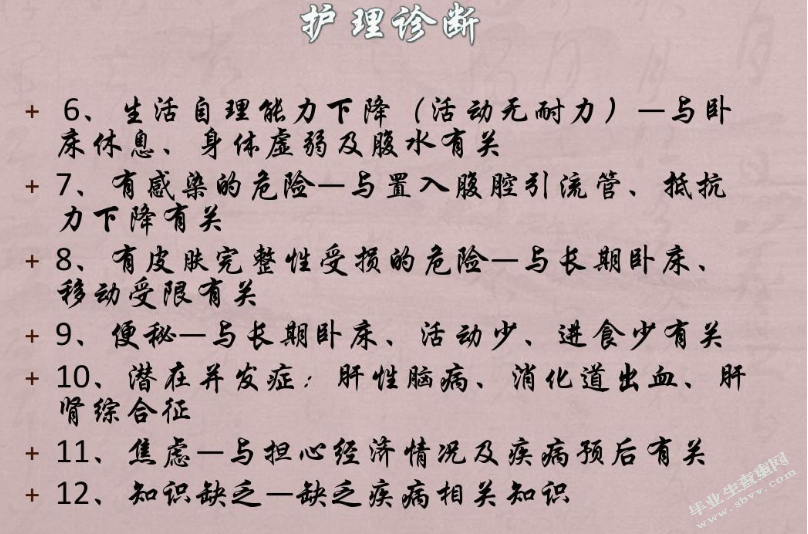 护理诊断
+ 6、生活自理能力下降（活动无耐力）—与卧
床休息、身体虚弱及腹水有关
+ 7、有感染的危险—与置入腹腔引流管、抵抗
力下降有关
+ 8、有皮肤完整性受损的危险—与长期卧床、
移动受限有关
+ 9、便秘—与长期卧床、活动少、进食少有关
+ 10、潜在并发症：肝性脑病、消化道出血、肝
肾综合征
+ 11、焦虑—与担心经济情况及疾病预后有关
+ 12、知识缺乏—缺乏疾病相关知识
毕业生查重网
www.sbvv.com